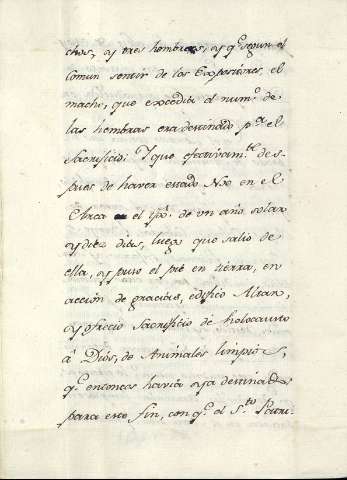 chos, y tres hembras, y q.e segun el
comun sentir de los Expositores, el
macho, que excedia al num.o de
las hembras era destinado p.a el
Sacrificio: Y que efectivam.te des-
pues de haver estado Noe en el
Arca el tpo. de un año solar
y diez dias, luego que salio de
ella, y puso el pié en tierra, en
acción de gracias, edificó Altar,
y ofreció Sacrificio de holocausto
á Diós, de Animales limpios,
q.e entonces havia ya destinados
para este fin, con q.e el S.to Patri-